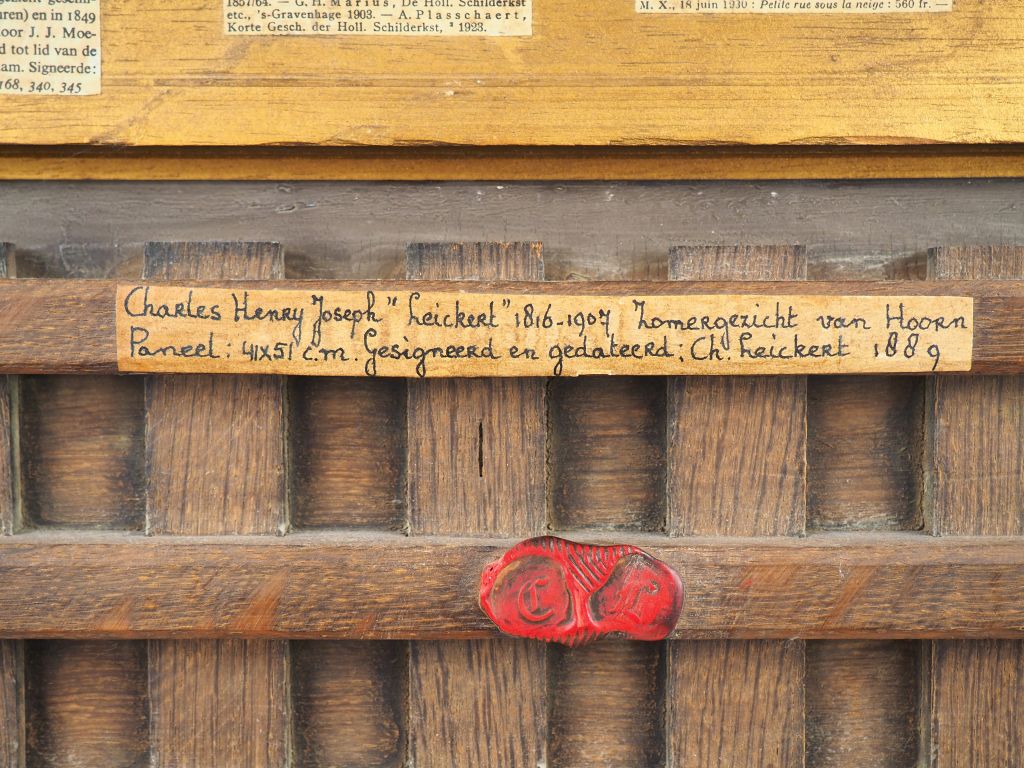 uren) en in 1849
oor J. J. Moe-
d tot lid van de
am. Signeerde:
168, 340, 345
1857/64. — G. H. Marius, De Holl. Schilderkst
etc., 's-Gravenhage 1903. — A. Plasschaert,
Korte Gesch. der Holl. Schilderkst, ² 1923.
M. X., 18 juin 1930 : Petite rue sous la neige : 560 fr. —
Charles Henry Joseph "Leickert" 1816-1907 Zomergezicht van Hoorn
Paneel: 41x51 c.m. Gesigneerd en gedateerd: Ch. Leickert 1889
C L